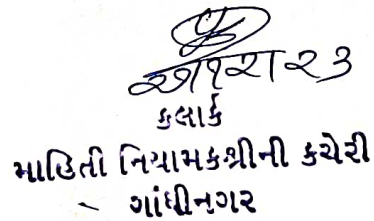 કલાર્ક
માહિતી નિયામકશ્રીની કચેરી
ગાંધીનગર